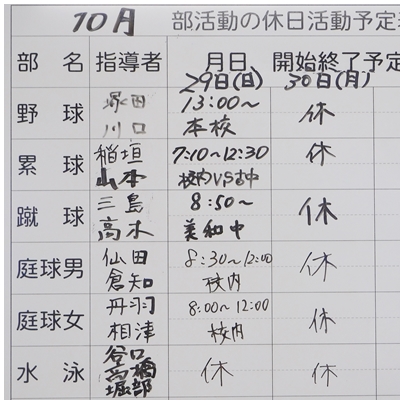 10月 部活動の休日活動予定
部名 指導者 月日 開始終了予定
29日(日) 30日(月)
野球 塚田 川口 13:00～ 本校 休
塁球 稲垣 山本 7:10～12:30 校内VS古中 休
蹴球 三島 高木 8:50～ 美和中 休
庭球男 仙田 倉知 8:30～12:00 校内 休
庭球女 丹羽 相津 8:00～12:00 校内 休
水泳 谷口 高橋 堀部 休 休